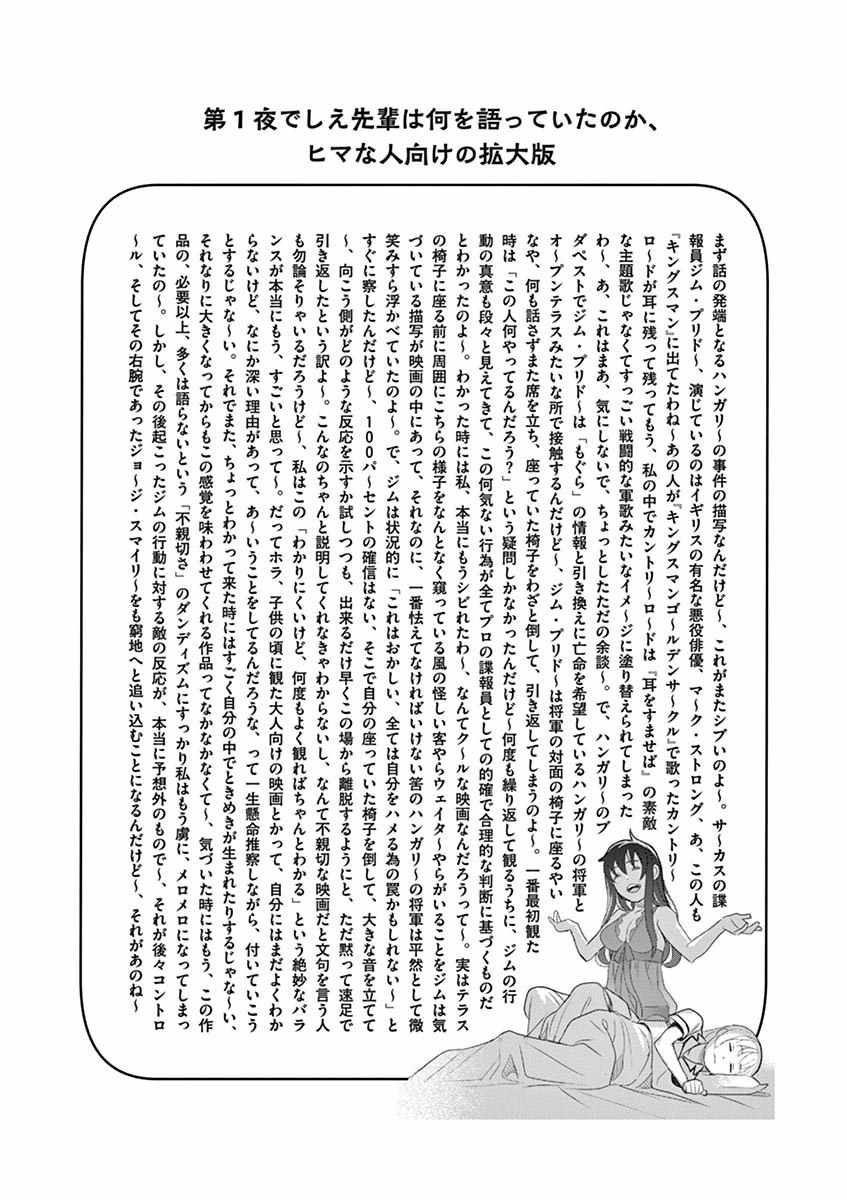 第1夜でしえ先輩は何を語っていたのか、
ヒマな人向けの拡大版
まず話の発端となるハンガリ〜の事件の描写なんだけど〜、これがまたシブいのよ〜。サ〜カスの諜
報員ジム・プリド〜、演じているのはイギリスの有名な悪役俳優、マ〜ク・ストロング、あ、この人も
『キングスマン』に出てたわね〜あの人が『キングスマンゴ〜ルデンサ〜クル』で歌ったカントリ〜
ロ〜ドが耳に残って残ってもう、私の中でカントリ〜ロ〜ドは『耳をすませば』の素敵
な主題歌じゃなくてすっごい戦闘的な軍歌みたいなイメ〜ジに塗り替えられてしまった
わ〜、あ、これはまあ、気にしないで、ちょっとしたただの余談〜。で、ハンガリ〜のブ
ダペストでジム・プリド〜は「もぐら」の情報と引き換えに亡命を希望しているハンガリ〜の将軍と
オ〜プンテラスみたいな所で接触するんだけど〜、ジム・プリド〜は将軍の対面の椅子に座るやい
なや、何も話さずまた席を立ち、座っていた椅子をわざと倒して、引き返してしまうのよ〜。一番最初観た
時は「この人何やってるんだろう？」という疑問しかなかったんだけど〜何度も繰り返して観るうちに、ジムの行
動の真意も段々と見えてきて、この何気ない行為が全てプロの諜報員としての的確で合理的な判断に基づくものだ
とわかったのよ〜。わかった時には私、本当にもうシビれたわ〜、なんてク〜ルな映画なんだろうって〜。実はテラス
の椅子に座る前に周囲にこちらの様子をなんとなく窺っている風の怪しい客やらウェイタ〜やらがいることをジムは気
づいている描写が映画の中にあって、それなのに、一番怯えてなければいけない筈のハンガリ〜の将軍は平然として微
笑みすら浮かべていたのよ〜。で、ジムは状況的に「これはおかしい、全ては自分をハメる為の罠かもしれない〜」と
すぐに察したんだけど〜、100パ〜セントの確信はない、そこで自分の座っていた椅子を倒して、大きな音を立てて
〜、向こう側がどのような反応を示すか試しつつも、出来るだけ早くこの場から離脱するようにと、ただ黙って速足で
引き返したという訳よ〜。こんなのちゃんと説明してくれなきゃわからないし、なんて不親切な映画だと文句を言う人
も勿論そりゃいるだろうけど〜、私はこの「わかりにくいけど、何度もよく観ればちゃんとわかる」という絶妙なバラ
ンスが本当にもう、すごいと思って〜。だってホラ、子供の頃に観た大人向けの映画とかって、自分にはまだよくわか
らないけど、なにか深い理由があって、あ〜いうことをしてるんだろうな、って一生懸命推察しながら、付いていこう
とするじゃな〜い。それでまた、ちょっとわかって来た時にはすごく自分の中でときめきが生まれたりするじゃな〜い、
それなりに大きくなってからもこの感覚を味わわせてくれる作品ってなかなかなくて〜、気づいた時にはもう、この作
品の、必要以上、多くは語らないという「不親切さ」のダンディズムにすっかり私はもう虜に、メロメロになってしまっ
ていたの〜。しかし、その後起こったジムの行動に対する敵の反応が、本当に予想外のもので〜、それが後々コントロ
〜ル、そしてその右腕であったジョ〜ジ・スマイリ〜をも窮地へと追い込むことになるんだけど〜、それがあのね〜